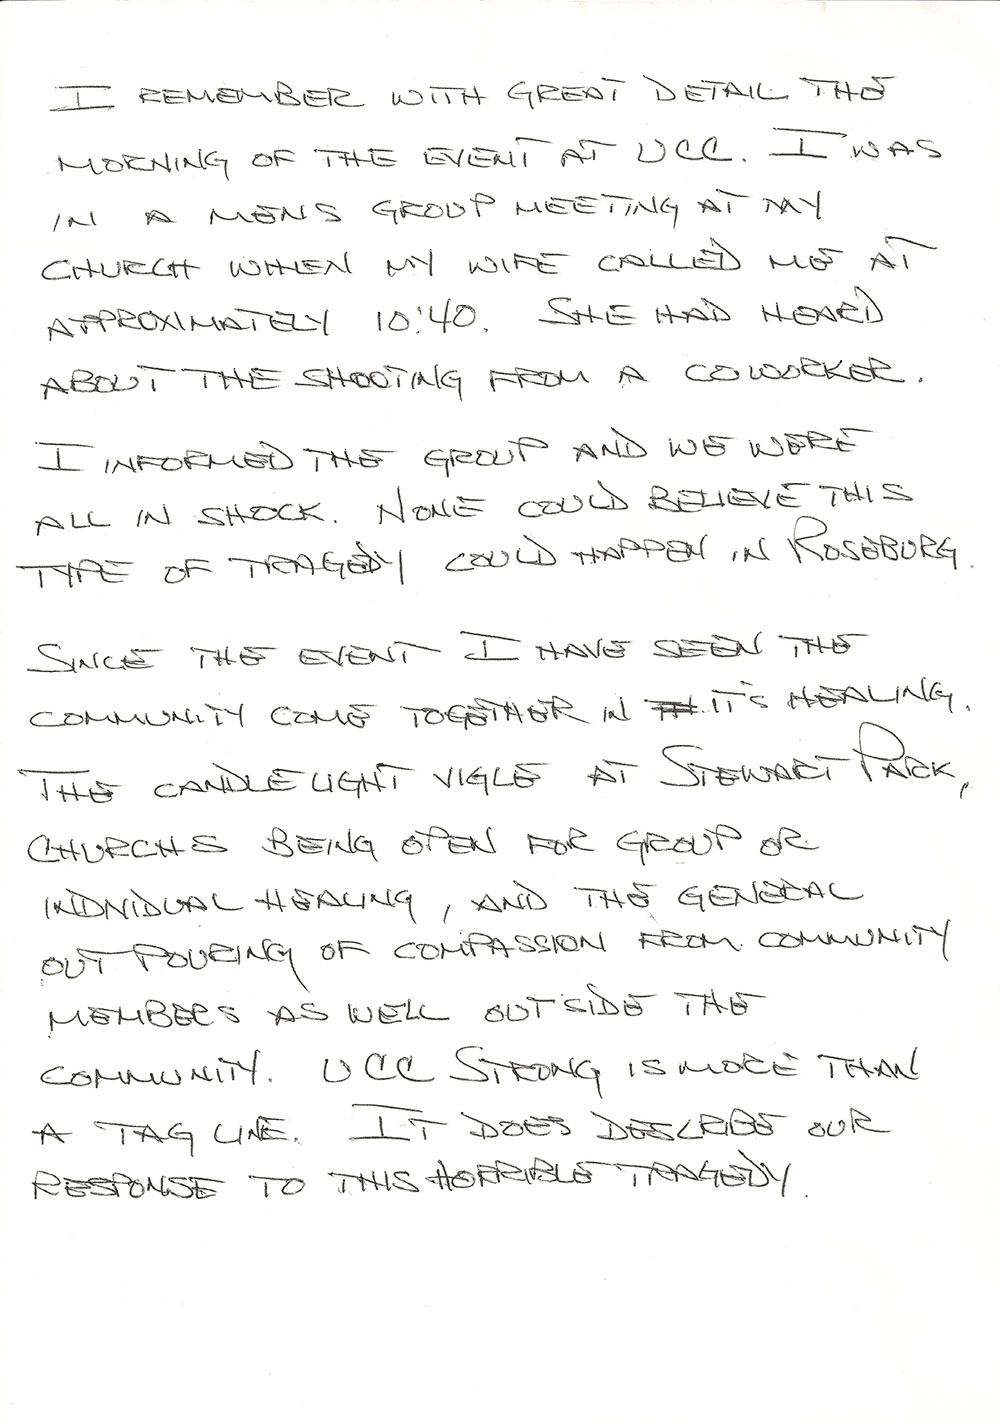 I REMEMBER WITH GREAT DETAIL THE
MORNING OF THE EVENT AT UCC. I WAS
IN A MENS GROUP MEETING AT MY
CHURCH WHEN MY WIFE CALLED ME AT
APPROXIMATELY 10:40. SHE HAD HEARD
ABOUT THE SHOOTING FROM A COWORKER.
I INFORMED THE GROUP AND WE WERE
ALL IN SHOCK. NONE COULD BELIEVE THIS
TYPE OF TRAGEDY COULD HAPPEN IN ROSEBURG.
SINCE THE EVENT I HAVE SEEN THE
COMMUNITY COME TOGETHER IN IT'S HEALING.
THE CANDLELIGHT VIGLE AT STEWART PARK,
CHURCHS BEING OPEN FOR GROUP OR
INDIVIDUAL HEALING, AND THE GENERAL
OUT POURING OF COMPASSION FROM COMMUNITY
MEMBERS AS WELL OUTSIDE THE
COMMUNITY. UCC STRONG IS MORE THAN
A TAG LINE. IT DOES DESCRIBE OUR
RESPONSE TO THIS HORRIBLE TRAGEDY.